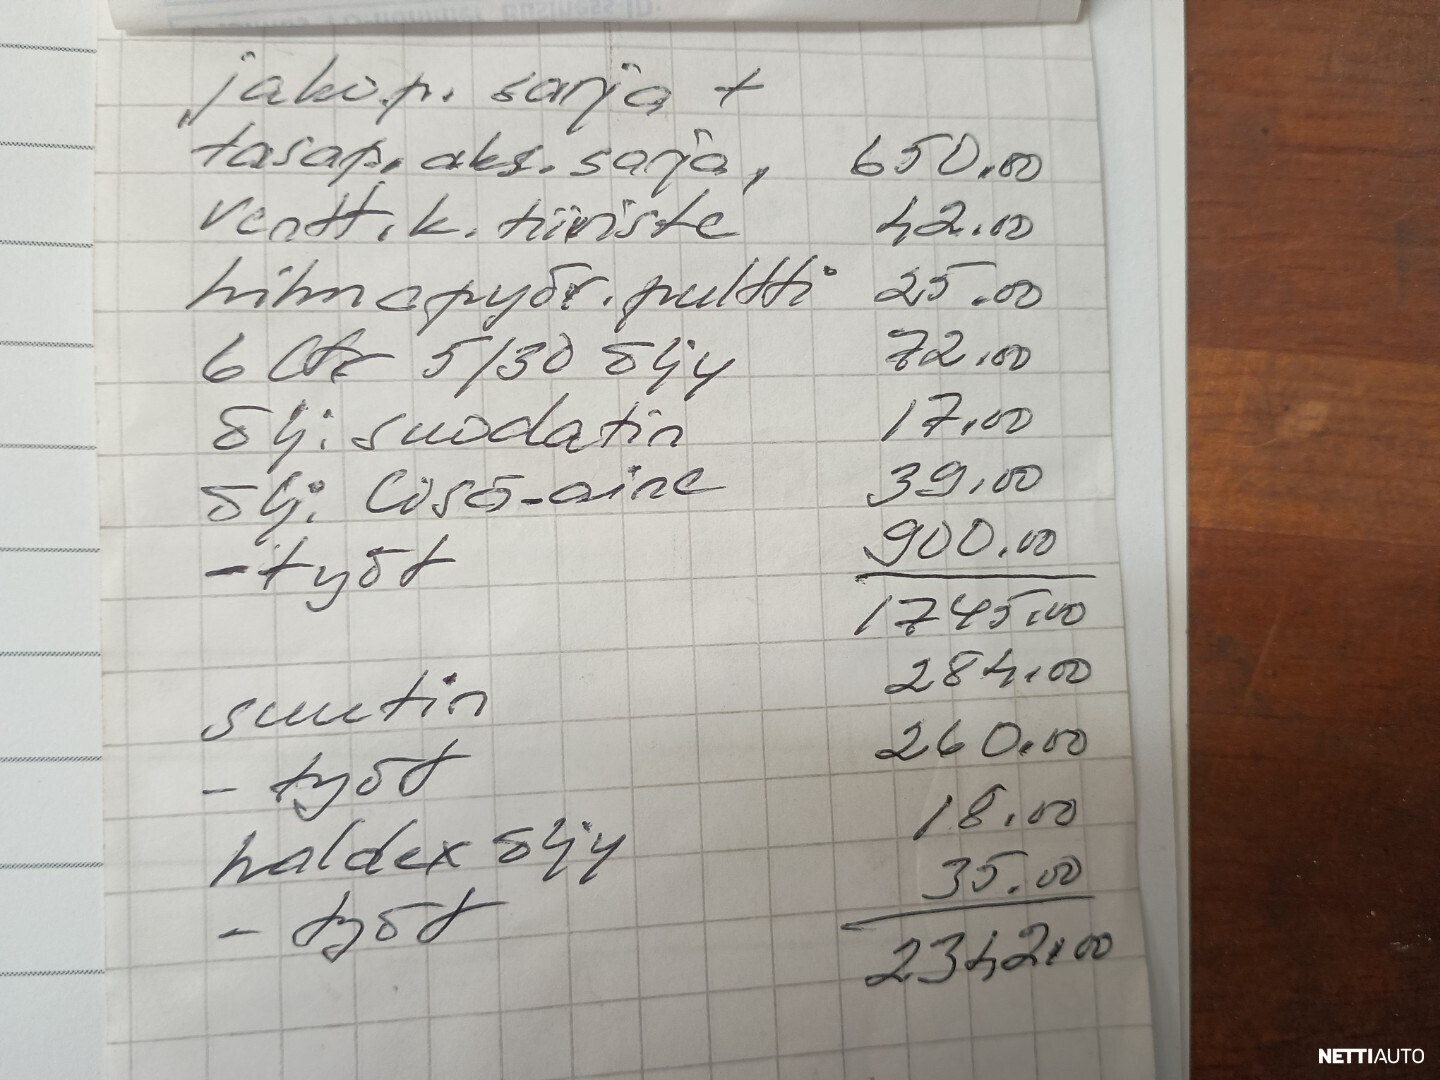 jakop. sarja +
tasap. aks. sarja, 650.00
Ventt. k. tiiviste 42.00
hihnapyör. pultti 25.00
6 ltr 5/30 öljy 72.00
ölj. suodatin 17.00
ölj. lisä-aine 39.00
- työt 900.00
1745.00
suutin 284.00
- työt 260.00
haldex öljy 18.00
- työt 35.00
2342.00
NETTIAUTO